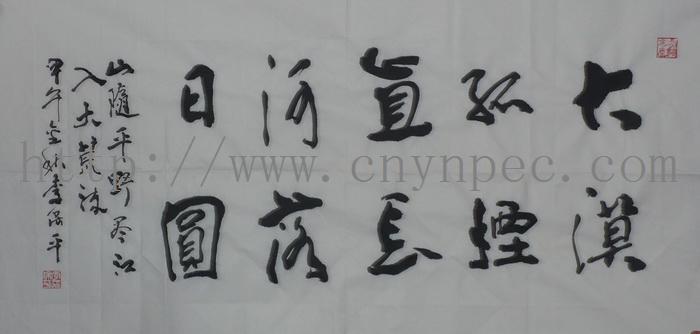 大漠
孤煙
直长
河落
日圓
山隨平野尽江
入大荒流
甲午金秋李保平
http://www.cnynpec.com